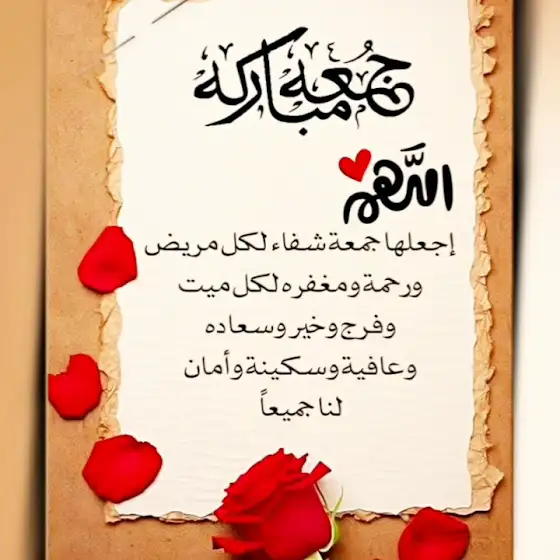 جمعة مباركة
اللهم
إجعلها جمعة شفاء لكل مريض
ورحمة ومغفره لكل ميت
وفرج وخير وسعاده
وعافية وسكينة وأمان
لنا جميعاً